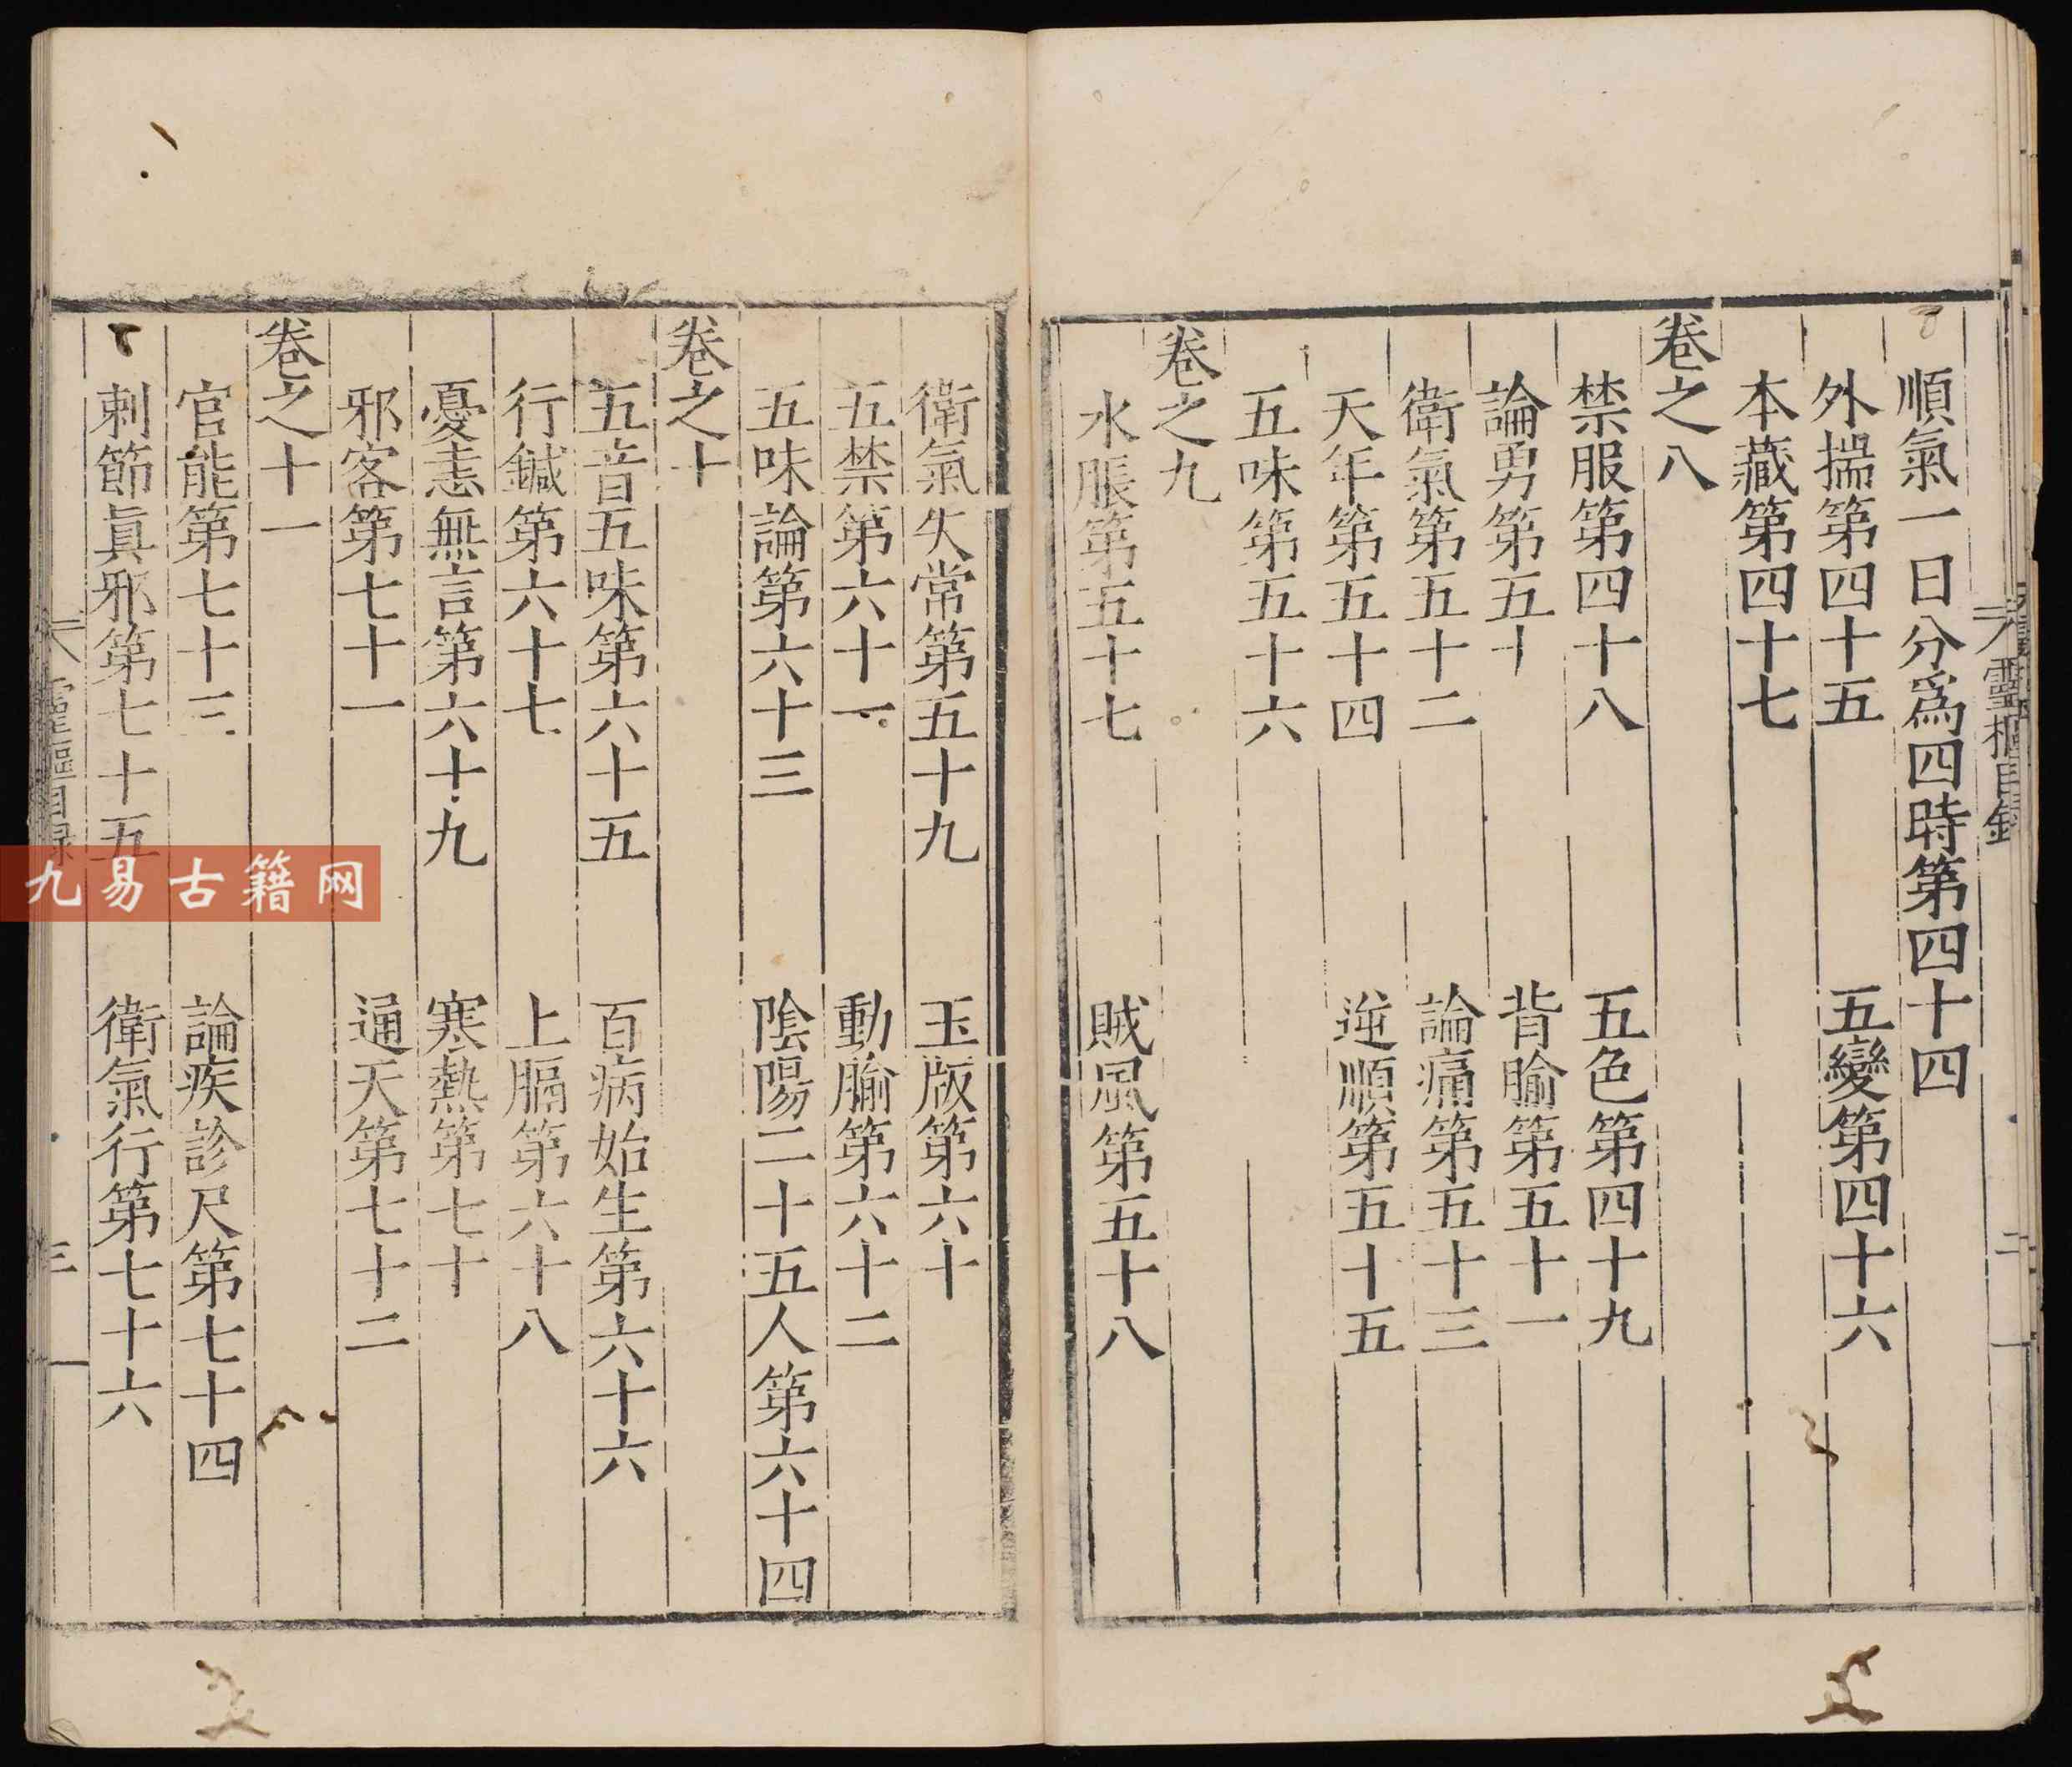 順氣一日分爲四時第四十四
外揣第四十五　五變第四十六
本藏第四十七
卷之八
禁服第四十八　五色第四十九
論勇第五十　背腧第五十一
衛氣第五十二　論痛第五十三
天年第五十四　逆順第五十五
五味第五十六
卷之九
水脹第五十七　賊風第五十八
衛氣失常第五十九　玉版第六十
五禁第六十一　動腧第六十二
五味論第六十三　陰陽二十五人第六十四
卷之十
五音五味第六十五　百病始生第六十六
行鍼第六十七　上膈第六十八
憂恚無言第六十九　寒熱第七十
邪客第七十一　通天第七十二
卷之十一
官能第七十三　論疾診尺第七十四
刺節眞邪第七十五　衛氣行第七十六
靈樞目錄
二
靈樞目録
三
九易古籍网